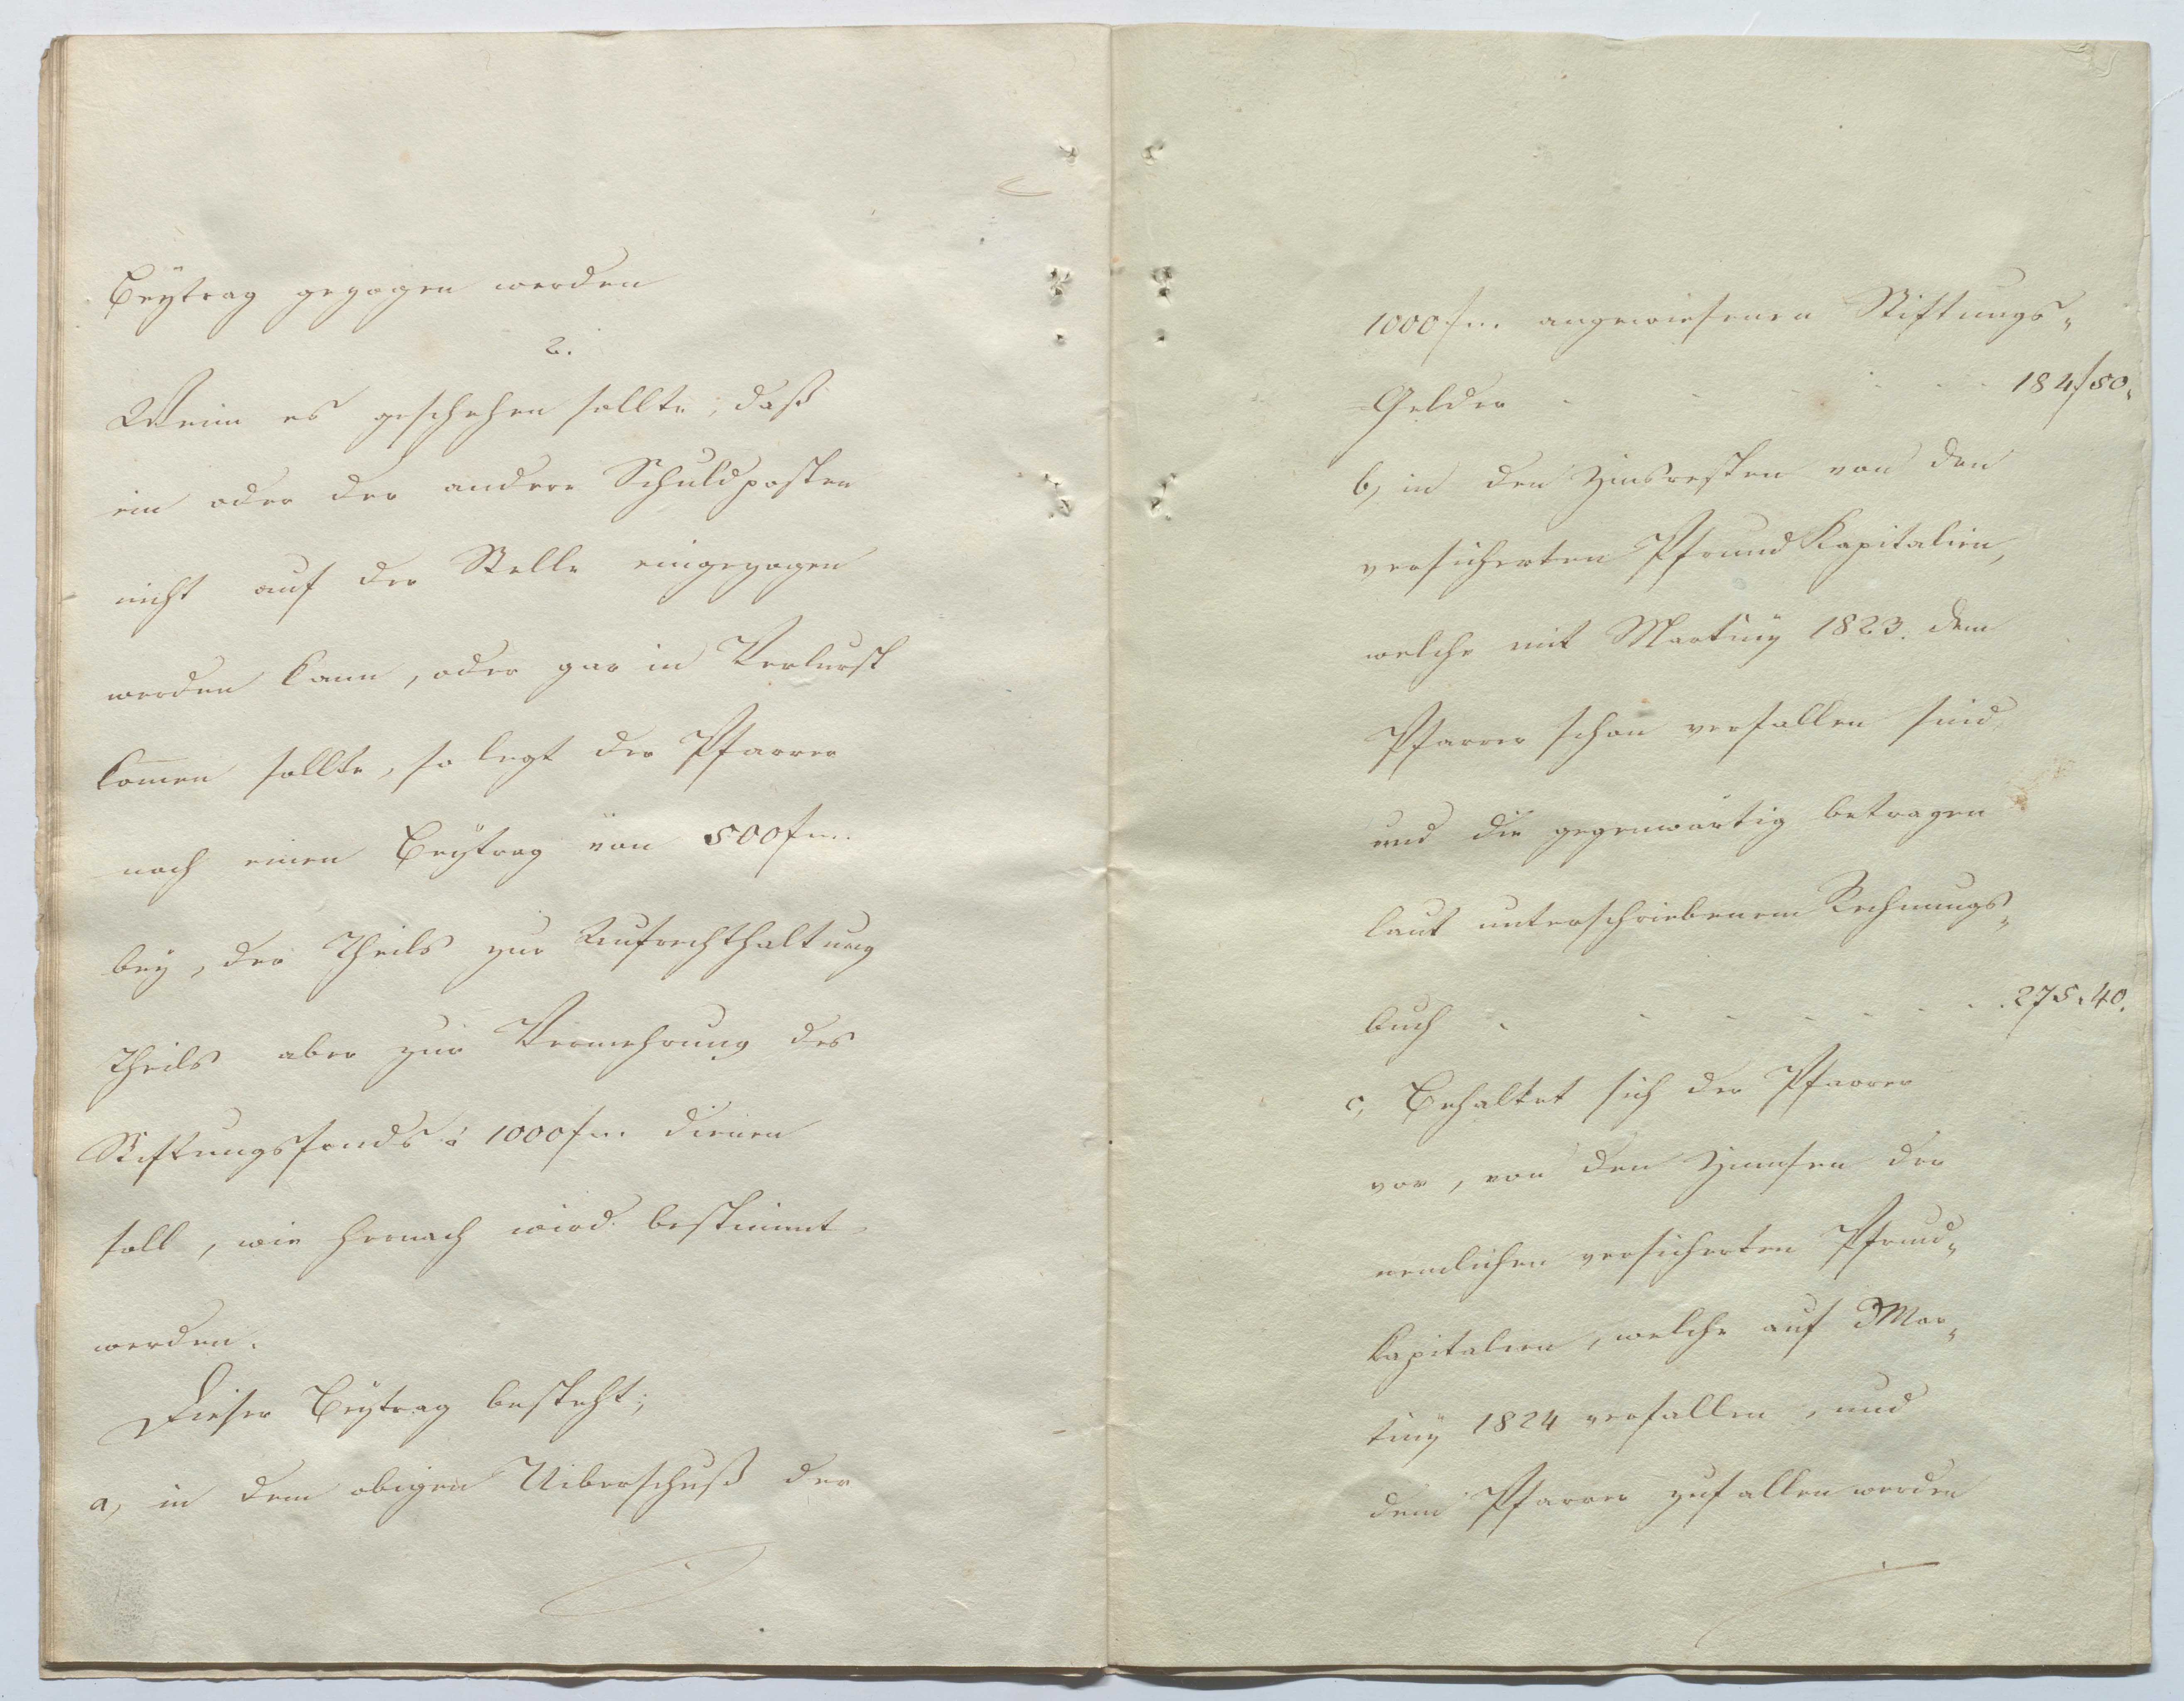 Beÿtrag gezogen werden
2.
Wenn es geschehen sollte, daß
ein oder der andere Schuldposten
nicht auf der Stelle eingezogen
werden kann, oder gar in Verlurst
kom̄en sollte, so legt der Pfarrer
noch einen Beÿtrag von 500 f
beÿ, der Theils zur Aufrechthaltung
Theils aber zur Vermehrung des
Stiftungsfonds à 1000 f dienen
soll, wie hernach wird bestimmt
werden.
Dieser Beÿtrag besteht;
a, in dem obigen Uiberschuß der
1000 f angewiesenen Stiftungs„
Gelder . . . . . . 184 f 50.
b, in den Zinsresten von den
versicherten Pfrund Kapitalien,
welche mit Martinÿ 1823. dem
Pfarrer schon verfallen sind
und die gegenwärtig betragen
laut unterschriebenem Rechnungs„
buch . . . . . . . . 275 . 40.
c, Behaltet sich der Pfarrer
vor, von den Zinnsen der
nemlichen versicherten Pfrund„
kapitalien, welche auf Mar„
tinÿ 1824 verfallen, und
dem Pfarrer zufallen werden